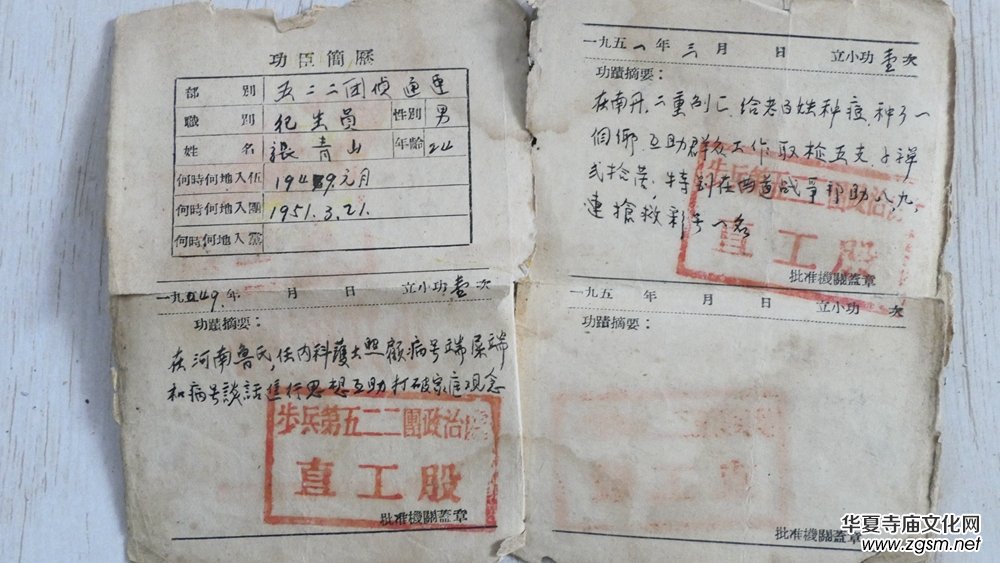 功臣簡歷
部別 五二二团侦通連
職別 纪生員 性別 男
姓名 張青山 年齡 24
何時何地入伍 1949元月
何時何地入團 1951.3.21.
何時何地入黨
一九49年 月 日 立小功壹次
功蹟摘要：
在河南鲁氏,任内科護士照顧病号端屎端
和病号談話進行思想互助打破家庭观念
步兵第五二二團政治
直工股
批准機關蓋章
一九五一年三月 日 立小功壹次
功蹟摘要：
在南丹,二重 给老百姓种痘,种了一
個鄉 互助群众工作取枪五支子弹
弍拾 特别在西 战争帮助八九
連搶救彩号一名
步兵第五二二團政治
直工股
批准機關蓋章
一九五 年 月 日 立小功 次
功蹟摘要：
批准機關蓋章
华夏寺庙文化网
www.zgsm.net